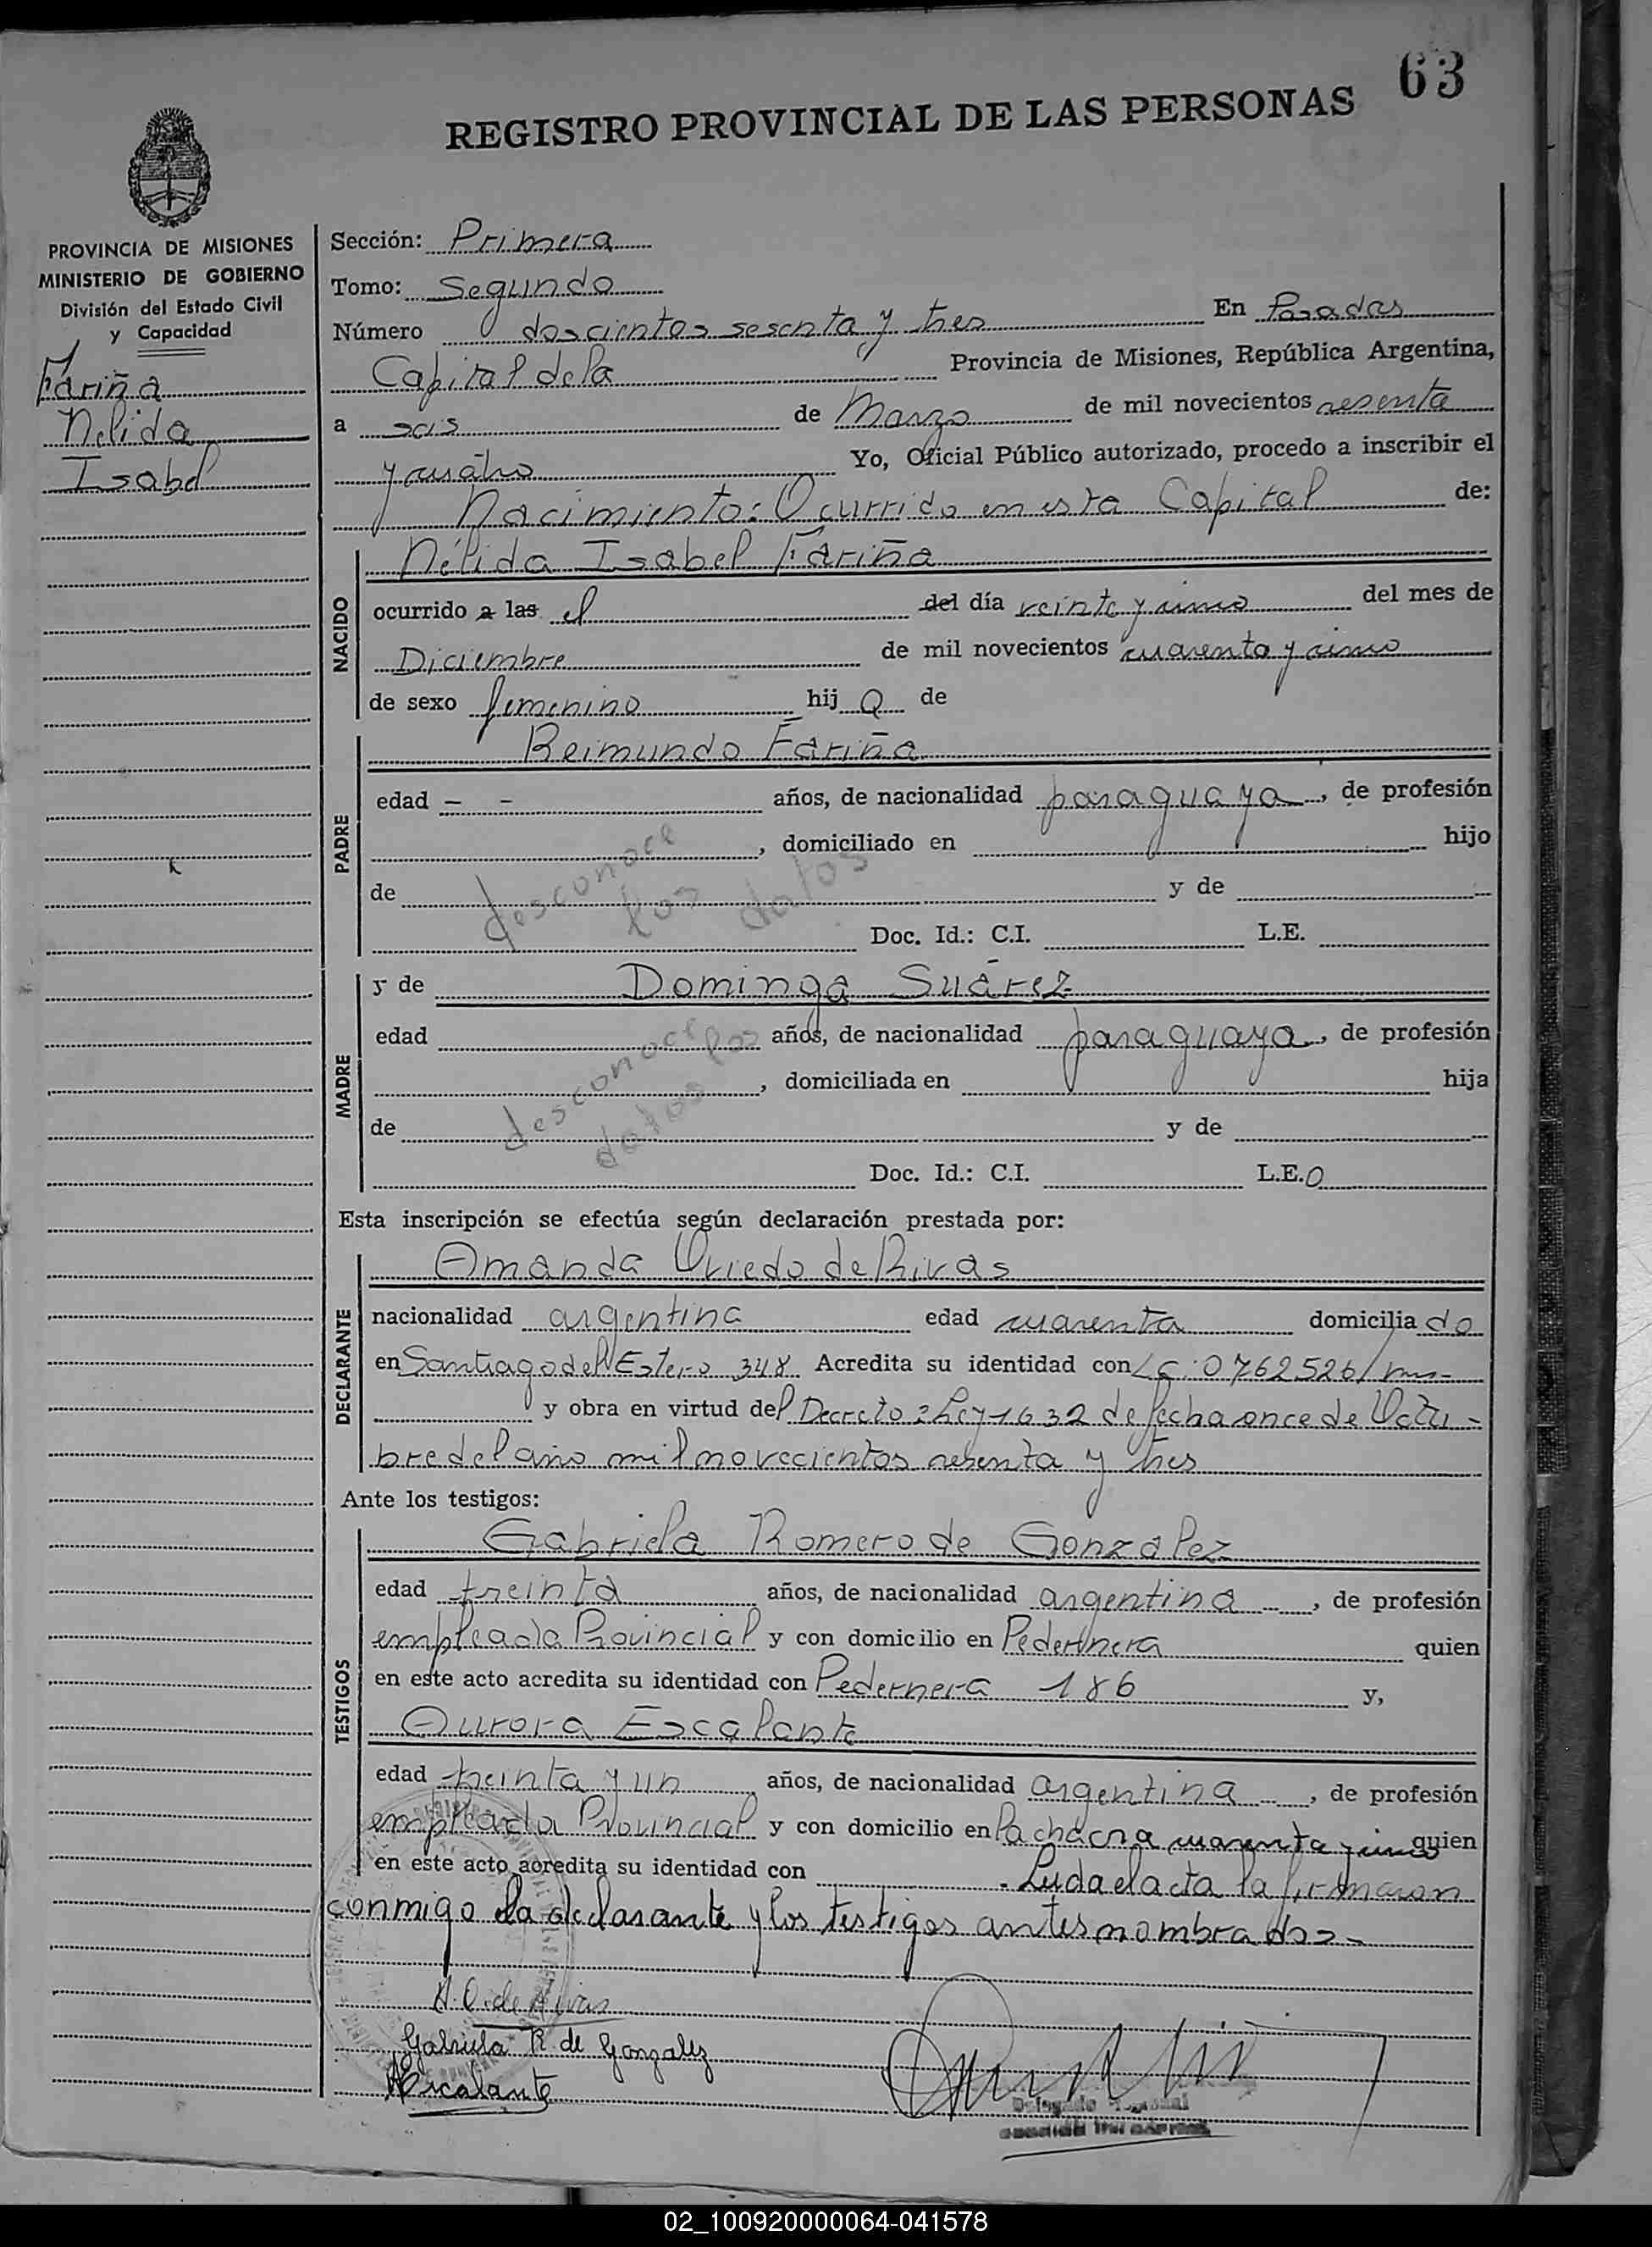 63
REGISTRO PROVINCIAL DE LAS PERSONAS
PROVINCIA DE MISIONES
MINISTERIO DE GOBIERNO
División del Estado Civil
y Capacidad
Fariña
Nelida
Isabel
Sección: Primera
Tomo: Segundo
Número doscientos sesenta y tres En Posadas
Capital de la Provincia de Misiones, República Argentina,
a seis de Marzo de mil novecientos sesenta
y cuatro Yo, Oficial Público autorizado, procedo a inscribir el
Nacimiento: Ocurrido en esta Capital de:
NACIDO
Nélida Isabel Fariña
ocurrido a las el del día veinte y cinco del mes de
Diciembre de mil novecientos cuarenta y cinco
de sexo femenino hij a de
PADRE
Reimundo Fariña
edad - - años, de nacionalidad paraguaya, de profesión
, domiciliado en hijo
de y de
desconoce los datos
Doc. Id.: C.I. L.E.
MADRE
y de Dominga Suárez
edad años, de nacionalidad paraguaya, de profesión
, domiciliada en hija
de y de
desconoce los datos
Doc. Id.: C.I. L.E.
Esta inscripción se efectúa según declaración prestada por:
DECLARANTE
Amanda Oviedo de Rivas
nacionalidad argentina edad cuarenta domicilia do
en Santiago del Estero 348 Acredita su identidad con L.C: 0762526/
y obra en virtud del Decreto=Ley 1632 de fecha once de Octu-
bre del año mil novecientos sesenta y tres
Ante los testigos:
TESTIGOS
Gabriela Romero de González
edad treinta años, de nacionalidad argentina, de profesión
empleada Provincial y con domicilio en Pedernera quien
en este acto acredita su identidad con Pedernera 186 y,
Aurora Escalante
edad treinta y un años, de nacionalidad argentina, de profesión
empleada Provincial y con domicilio en cuarenta y cinco quien
en este acto acredita su identidad con . Leida el acta la firmaron
conmigo la declarante y los testigos antes nombrados-
A. O. de Rivas
Gabriela R. de Gonzalez
A Escalante
02_100920000064-041578